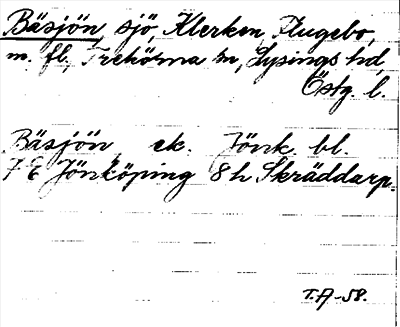 Bäsjön, sjö, Klerken, Flugebo,
m. fl., Trehörna sn, Lysings hd,
Östg. l.
Bäsjön ek. Jönk. bl.
7 E Jönköping 8 h Skräddarp.
T.A-58.